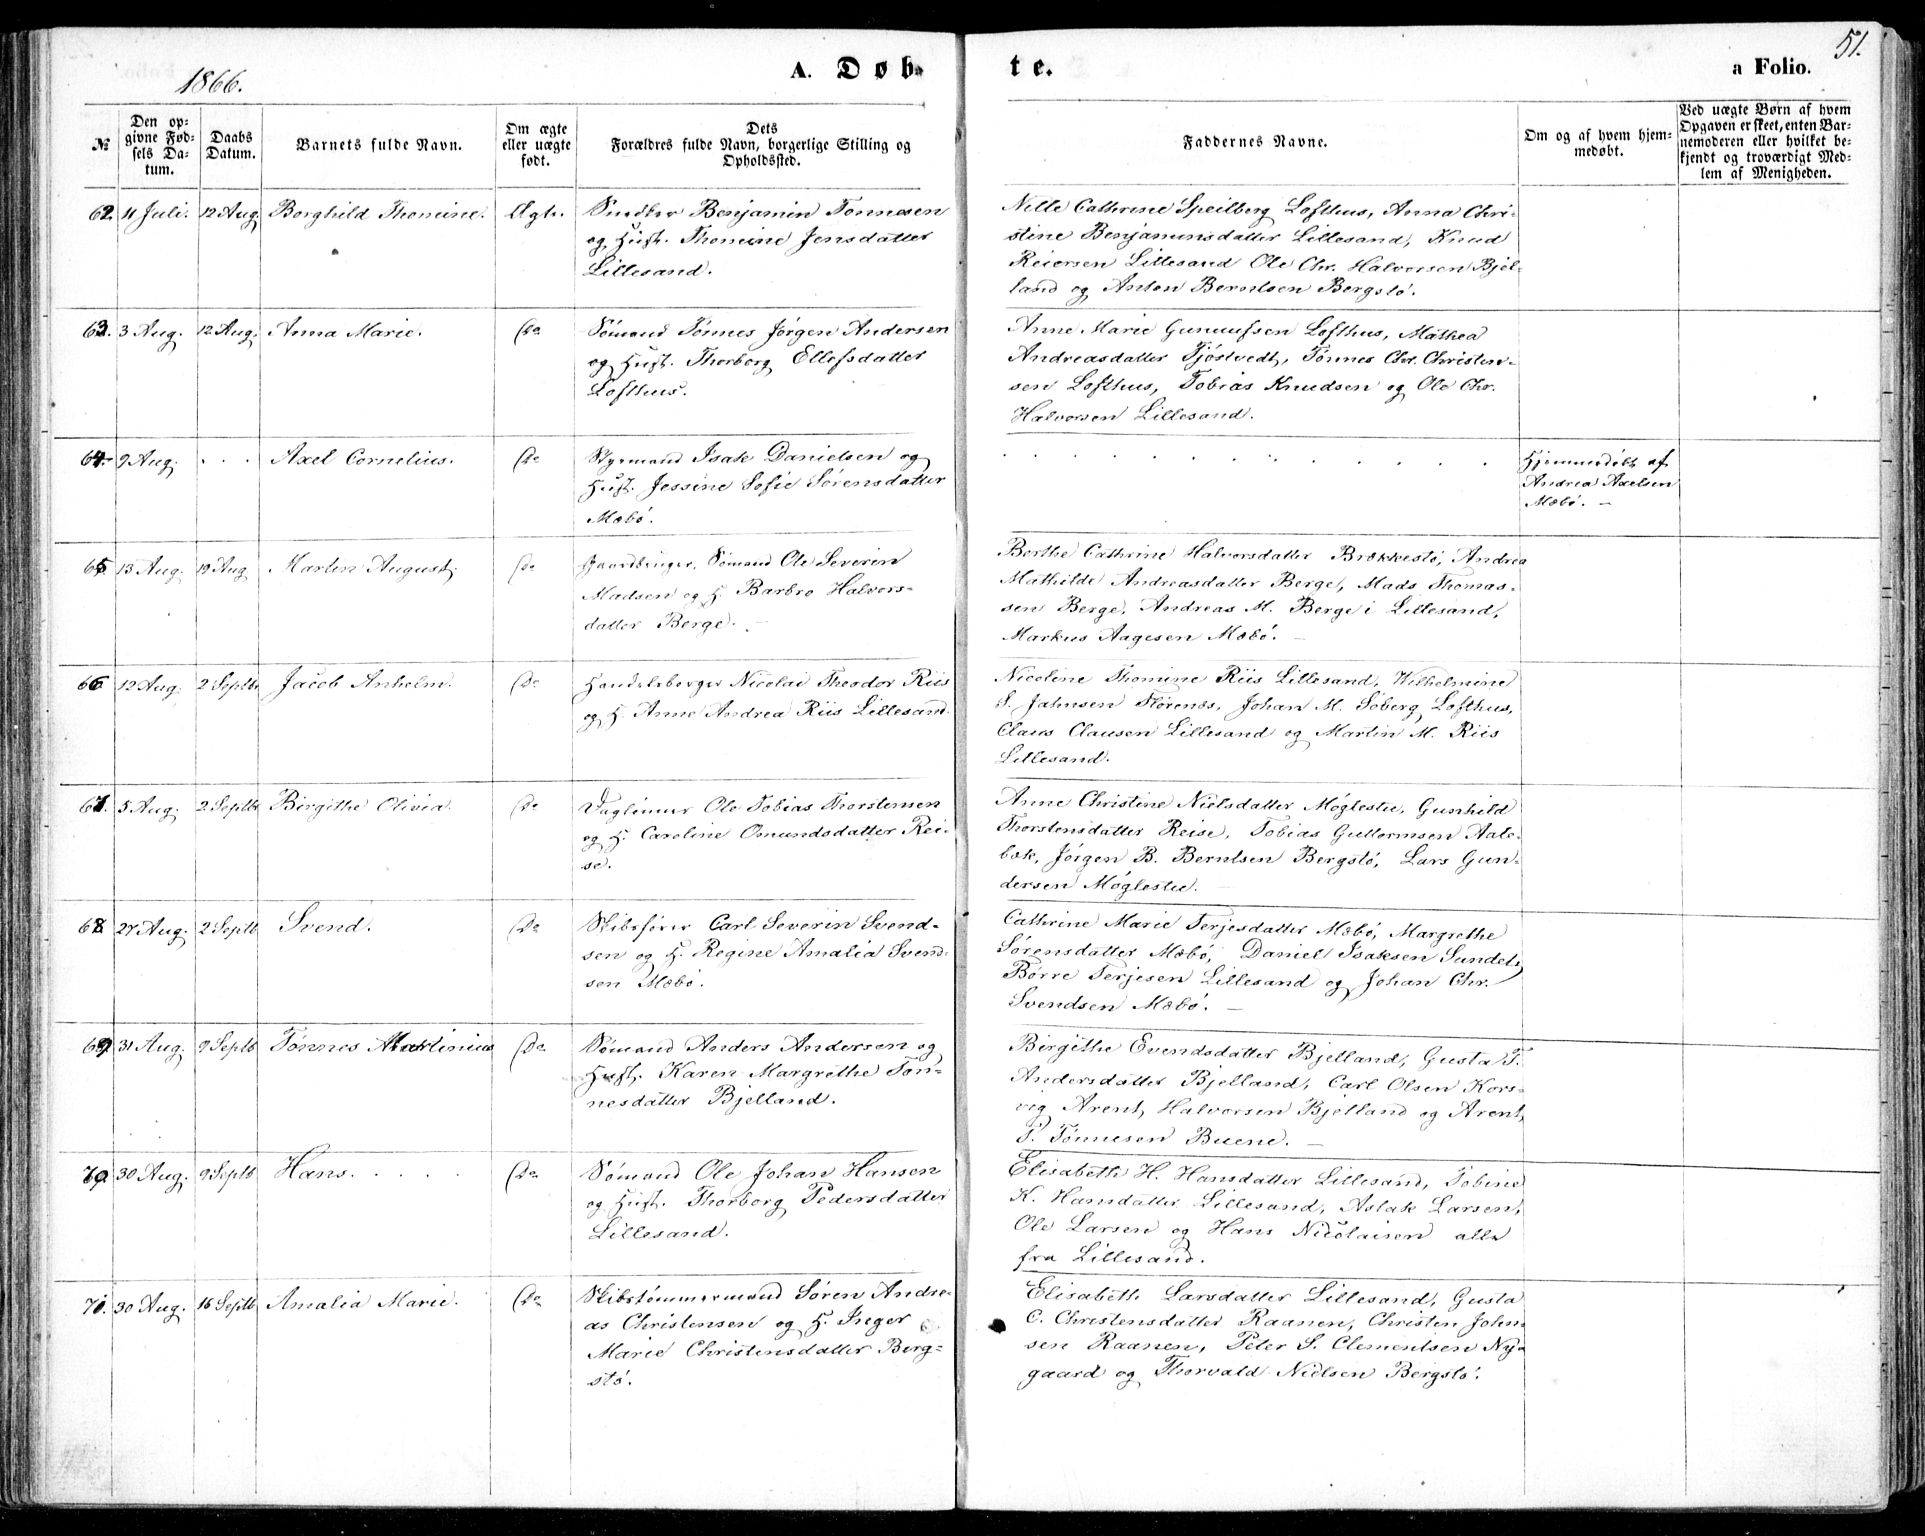 1866.
A. Døb-
te.
a Folio.
51.
№
Den op-
givne Fød-
sels Da-
tum.
Daabs
Datum.
Barnets fulde Navn.
Om ægte
eller uægte
født.
Dets
Forældres fulde Navn, borgerlige Stilling og
Opholdssted.
Faddernes Navne.
Om og af hvem hjem-
medøbt.
Ved uægte Børn af hvem
Opgaven er skeet, enten Bar-
nemoderen eller hvilket be-
kjendt og troværdigt Med-
lem af Menigheden.
62. 11 Juli. 12 Aug. Borghild Thomine. Ægte.
Benjamin Tønnesen
og Hust. Thomine Jensdatter
Lillesand.
Nille Cathrine Speilberg Lofthus, Anna Chri-
stine Benjaminsdatter Lillesand, Knud
Reiersen Lillesand Ole Chr. Halvorsen Bjel-
land og Anton Berntsen Bergstø.
63. 3 Aug. 12 Aug. Anna Marie. Do
Sømand Tønnes Jørgen Andersen
og Hust. Thorborg Ellefsdatter
Lofthus.
Anne Marie Gunnufsen Lofthus, Mathea
Andreasdatter Tjøstvedt, Tønnes Chr. Christen-
sen Lofthus, Tobias Knudsen og Ole Chr.
Halvorsen Lillesand.
64. 9 Aug. . . . Axel Cornelius. Do
Styrmand Isak Danielsen og
Hust. Jessine Sofie Sørensdatter
Mæbø.
Hjemmedøbt af
Andrea Axelsen
Mæbø. —
65. 13 Aug. 19 Aug Martin August. Do
Gaardbruger, Sømand Ole Severin
Madsen og H. Barbro Halvors-
datter Berge. —
Berthe Cathrine Halvorsdatter Brækkestø, Andrea
Mathilde Andreasdatter Berge, Mads Thomas-
sen Berge, Andreas M. Berge i Lillesand,
Markus Aagesen Mæbø. —
66 12 Aug. 2 Septb. Jacob Anhelm. Do
Handelsborger Nicolai Theodor Riis
og H. Anne Andrea Riis Lillesand.
Nicoline Thomine Riis Lillesand, Wilhelmine
S. Jahnsen Flørenæs, Johan M. Søberg Lofthus,
Claus Clausen Lillesand og Martin M. Riis
Lillesand.
67. 5 Aug. 2 Septb Birgithe Olivia. Do
Daglønner Ole Tobias Thorstensen
og H. Caroline Omundsdatter Rei-
se.
Anne Christine Nielsdatter Møglestue, Gunhild
Thorstensdatter Reise, Tobias Guttormsen Aale-
bæk, Jørgen B. Berntsen Bergstø, Lars Gun-
dersen Møglestue. —
68 27 Aug. 2 Septb Svend. Do
Skibsfører Carl Severin Svend-
sen og H. Regine Amalia Svend-
sen Mæbø.
Cathrine Marie Terjesdatter Mæbø, Margrethe
Sørensdatter Mæbø, Daniel Isaksen Sundet,
Børre Terjesen Lillesand og Johan Chr.
Svendsen Mæbø. —
69. 31 Aug. 9 Septb Tønnes Martinius Do
Sømand Anders Andersen og
Hust. Karen Margrethe Tøn-
nesdatter Bjelland.
Birgithe Evendsdatter Bjelland, Gusta T.
Andersdatter Bjelland, Carl Olsen Kors-
vig, Arent Halvorsen Bjelland og Arent
T. Tønnesen Buene. —
70. 30 Aug. 9 Septb Hans. . . . . Do
Sømand Ole Johan Hansen
og Hust. Thorborg Pedersdatter
Lillesand.
Elisabeth H. Hansdatter Lillesand, Tobine
K. Hansdatter Lillesand, Aslak Larsen,
Ole Larsen og Hans Nicolaisen alle
fra Lillesand.
71. 30 Aug. 16 Septb Amalia Marie. Do
Skibstømmermand Søren Andre-
as Christensen og H. Inger
Marie Christensdatter Berg-
stø.
Elisabeth Larsdatter Lillesand, Gusta
C. Christensdatter Raanen, Christen John-
sen Raanen, Peter S. Clementsen Ny-
gaard og Thorvald Nielsen Bergstø.